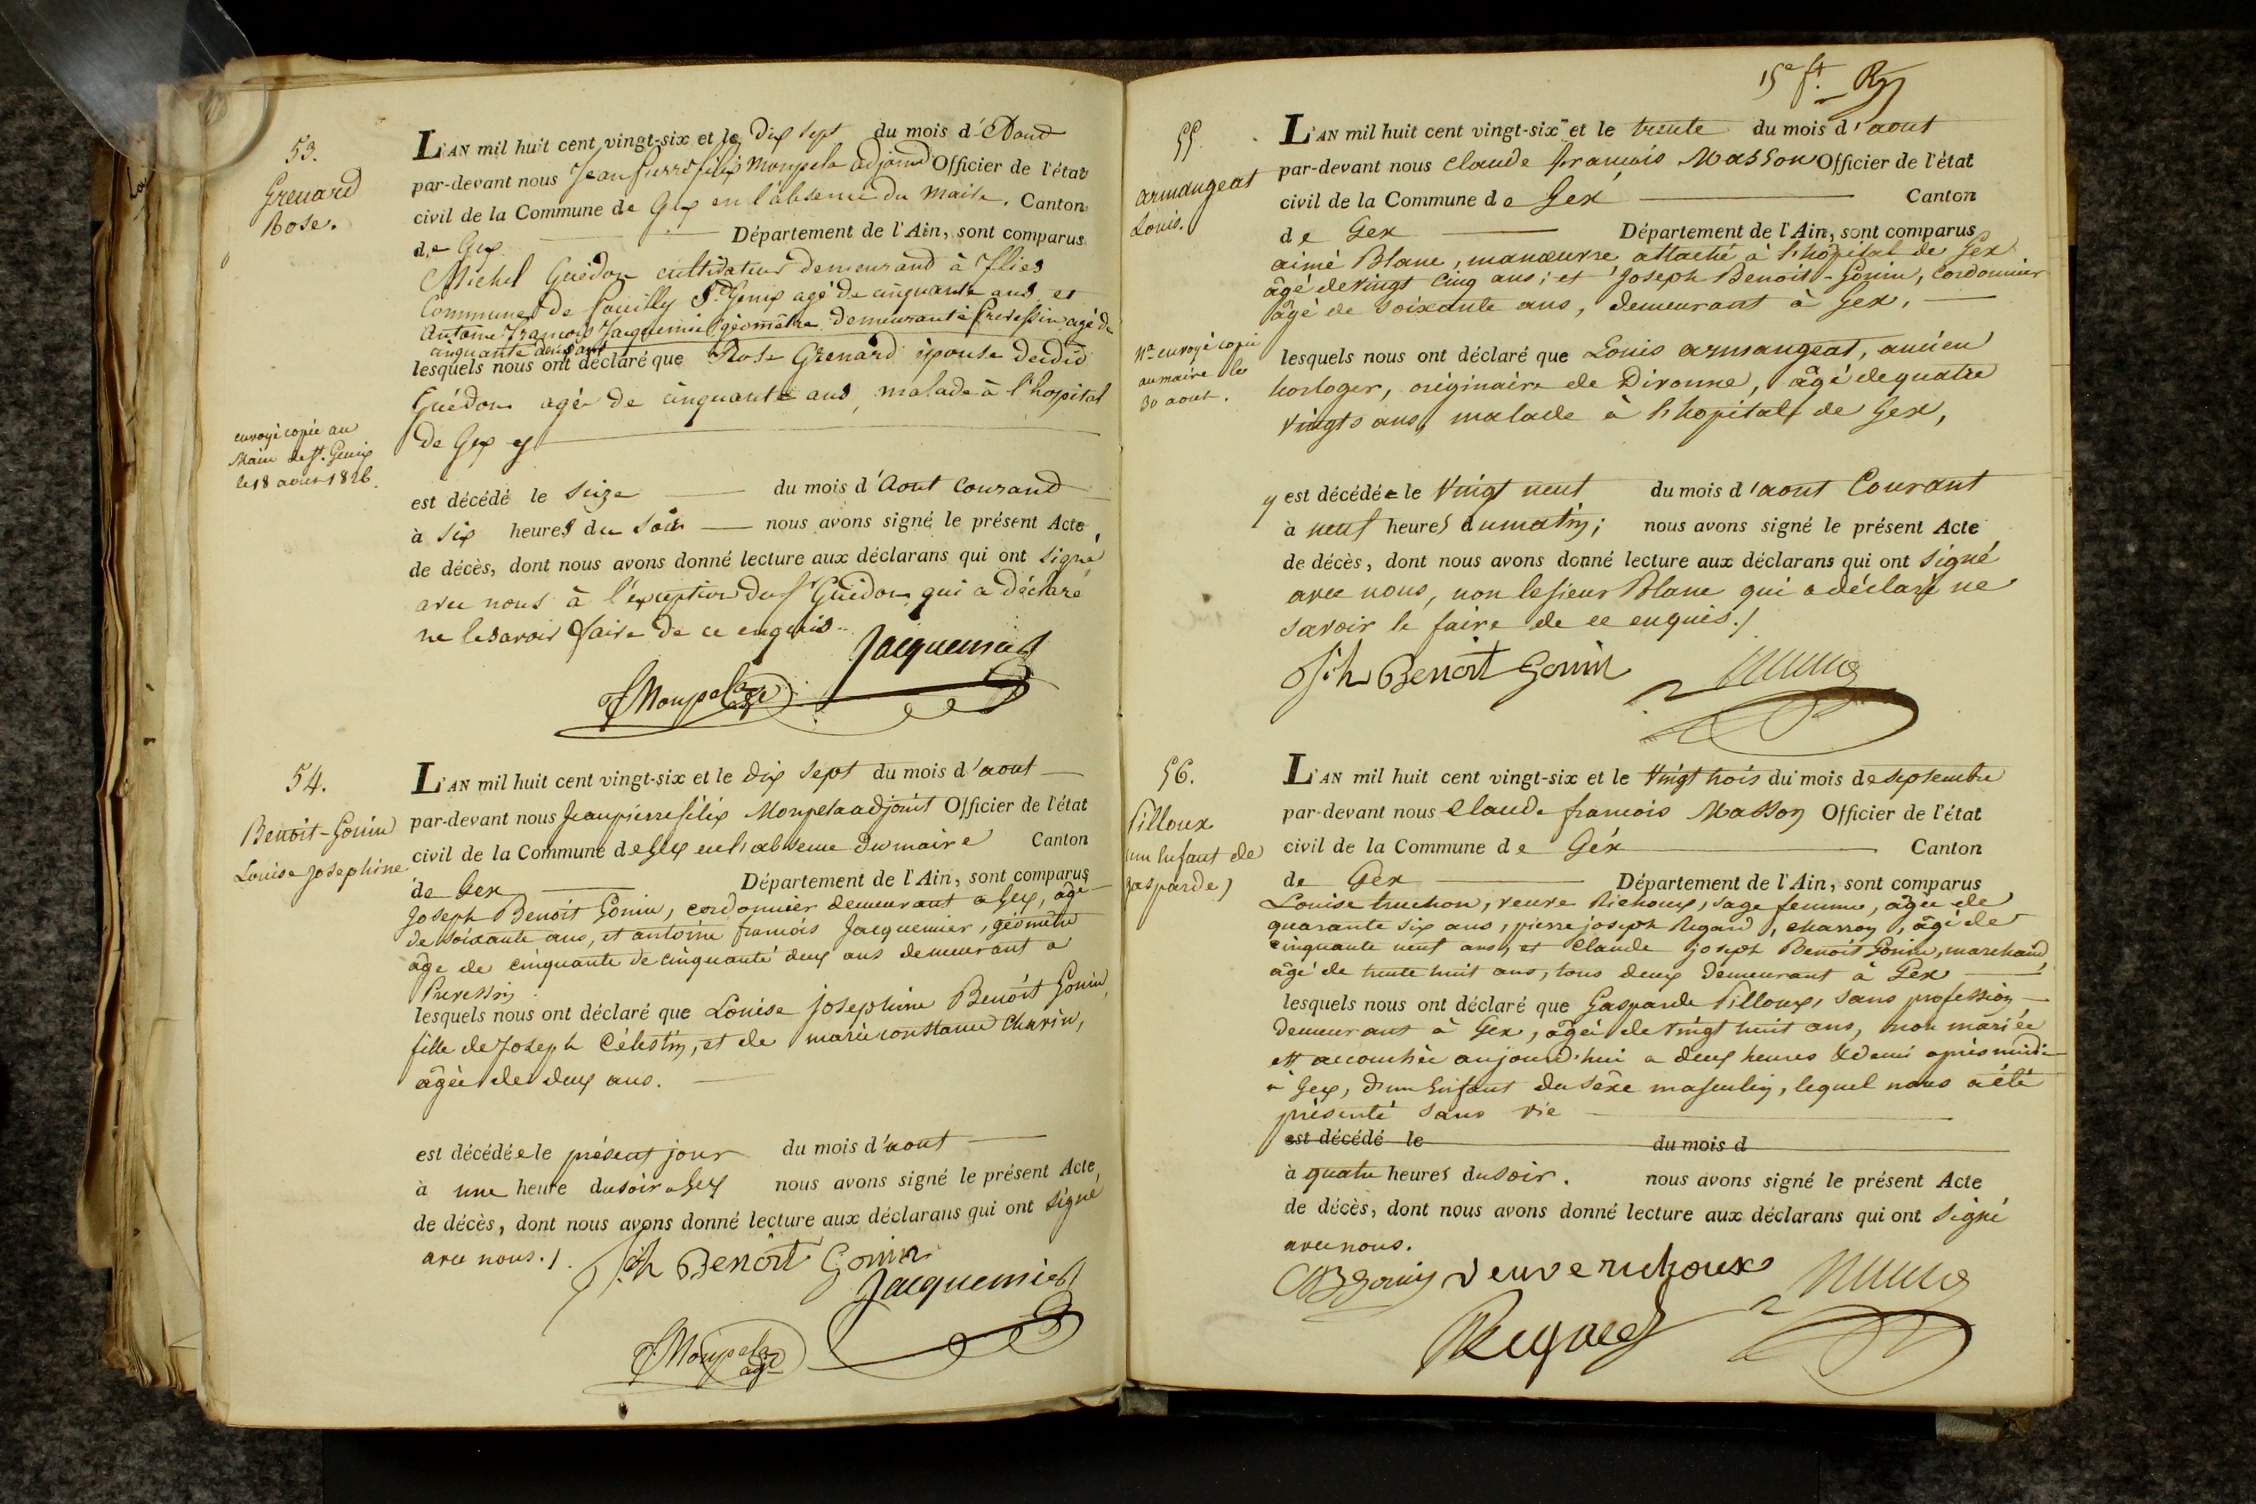 53.
Grenard
Rose.
L'AN mil huit cent vingt-six et le dix sept du mois d'Aout
par-devant nous Jean pierre félix Monpela adjoint Officier de l'état
civil de la Commune de Gex en l'absence du Maire. Canton
de Gex Département de l'Ain, sont comparus
Michel Guédon cultivateur demeurant à flies
Commune de Pouilly St. Genix agé de cinquante ans et
Antoine françois Jacquemier géomètre demeurant à Prevessin agé de
cinquante deux ans
lesquels nous ont déclaré que Rose Grenard épouse dudit
Guédon agée de cinquante ans, malade à l'hopital
de Gex y
envoyé copie au
Maire de St. Genix
le 18 aout 1826.
est décédé le seize du mois d'Aout courant
à six heures du soir nous avons signé le présent Acte
de décès, dont nous avons donné lecture aux déclarans qui ont signé
avec nous à l'exception du sr Guédon qui a déclaré
ne le savoir faire de ce enquis.
Jacquemier
f Monpela adjt
54.
Benoit-Gonin
Louise Josephine
L'AN mil huit cent vingt-six et le dix sept du mois d'aout
par-devant nous Jean pierre félix Monpela adjoint Officier de l'état
civil de la Commune de Gex en l'absence du maire Canton
de Gex Département de l'Ain, sont comparus
Joseph Benoit Gonin, cordonnier demeurant a Gex, âgé
de soixante ans, et antoine françois Jacquemier, géomètre
âgé de cinquante de cinquante deux ans demeurant a
Prevessin.
lesquels nous ont déclaré que Louise josephine Benoit Gonin,
fille de Joseph Célestin, et de marie constance Charin,
âgée de deux ans.
est décédée le présent jour du mois d'aout
à une heure du soir a Gex nous avons signé le présent Acte
de décès, dont nous avons donné lecture aux déclarans qui ont signé
avec nous./.
Jsh Benoit Gonin
Jacquemier
f Monpela adjt
15e ft.
55.
armangeat
Louis.
L'AN mil huit cent vingt-six et le trente du mois d'aout
par-devant nous claude françois Masson Officier de l'état
civil de la Commune de Gex Canton
de Gex Département de l'Ain, sont comparus
aimé Blanc, manœuvre attaché à l'hôpital de Gex
âgé de vingt cinq ans; et Joseph Benoit-Gonin, cordonnier
âgé de soixante ans, demeurant à Gex,
nta envoyé copie
au maire le
30 aout.
lesquels nous ont déclaré que Louis armangeat, ancien
horloger, originaire de Divonne, âgé de quatre
vingts ans, malade à l'hopital de Gex,
y est décédé le vingt neuf du mois d'aout Courant
à neuf heures du matin; nous avons signé le présent Acte
de décès, dont nous avons donné lecture aux déclarans qui ont signé
avec nous, non le sieur Blanc qui a déclaré ne
savoir le faire de ce enquis./
Jsh Benoit Gonin
56.
Pilloux
(un Enfant de
gasparde)
L'AN mil huit cent vingt-six et le vingt trois du mois de septembre
par-devant nous Claude françois Masson Officier de l'état
civil de la Commune de Géx Canton
de Gex Département de l'Ain, sont comparus
Louise truchon, veuve Richoux, sage femme, âgée de
quarante six ans, pierre joseph Regard, charron, âgé de
cinquante neuf ans, et Claude joseph Benoit Gonin, marchand,
âgé de trente huit ans, tous deux demeurant à Géx
lesquels nous ont déclaré que Gasparde Pilloux, sans profession
demeurant à Gex, âgée de vingt huit ans, non mariée
est accouchée aujourd'hui a deux heures & demi après midi
à Gex, d'un Enfant du sêxe masculin, lequel nous a été
présenté sans vie
est décédé le du mois d
à quatre heures du soir. nous avons signé le présent Acte
de décès, dont nous avons donné lecture aux déclarans qui ont signé
avec nous.
CJB Gonin veuve richoux
Regard